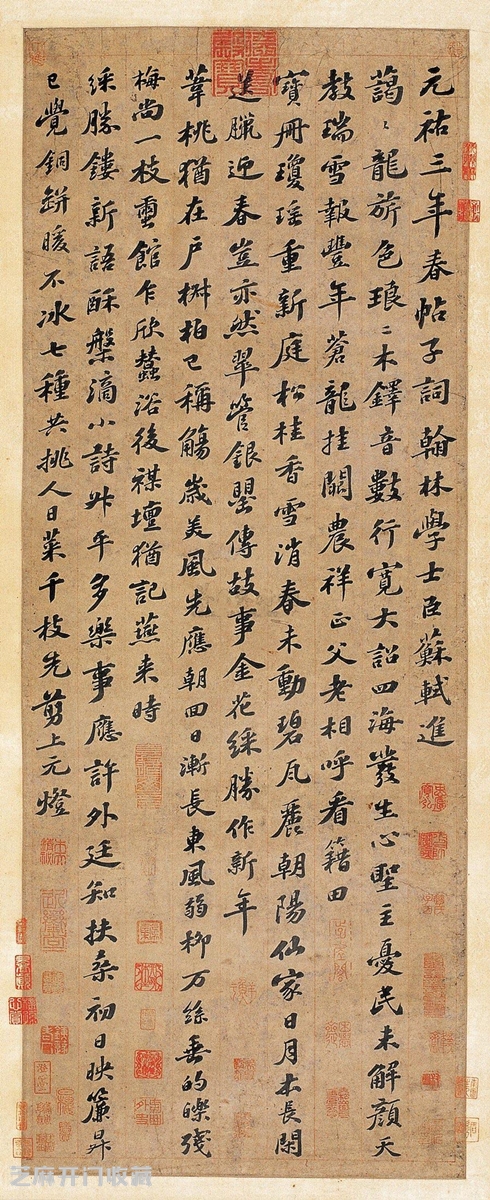 元祐三年春帖子詞翰林學士臣蘇軾進
藹〻龍旂色琅〻木鐸音數行寬大詔四海發生心聖主憂民未解顏天
教瑞雪報豐年蒼龍挂闕農祥正父老相呼看籍田
寶冊瓊瑤重新庭松桂香雪消春未動碧瓦麗朝陽仙家日月本長閑
送臘迎春豈亦然翠管銀罌傳故事金花綵勝作新年
葦桃猶在戶椒柏已稱觴歲美風先應朝回日漸長東風弱柳万絲垂的皪殘
梅尚一枝繭館乍欣蠶浴後禖壇猶記燕来時
綵勝鏤新語酥槃滴小詩升平多樂事應許外廷知扶桑初日映簾昇
已覺銅缾暖不冰七種共挑人日菜千枝先剪上元燈
芝麻开门收藏